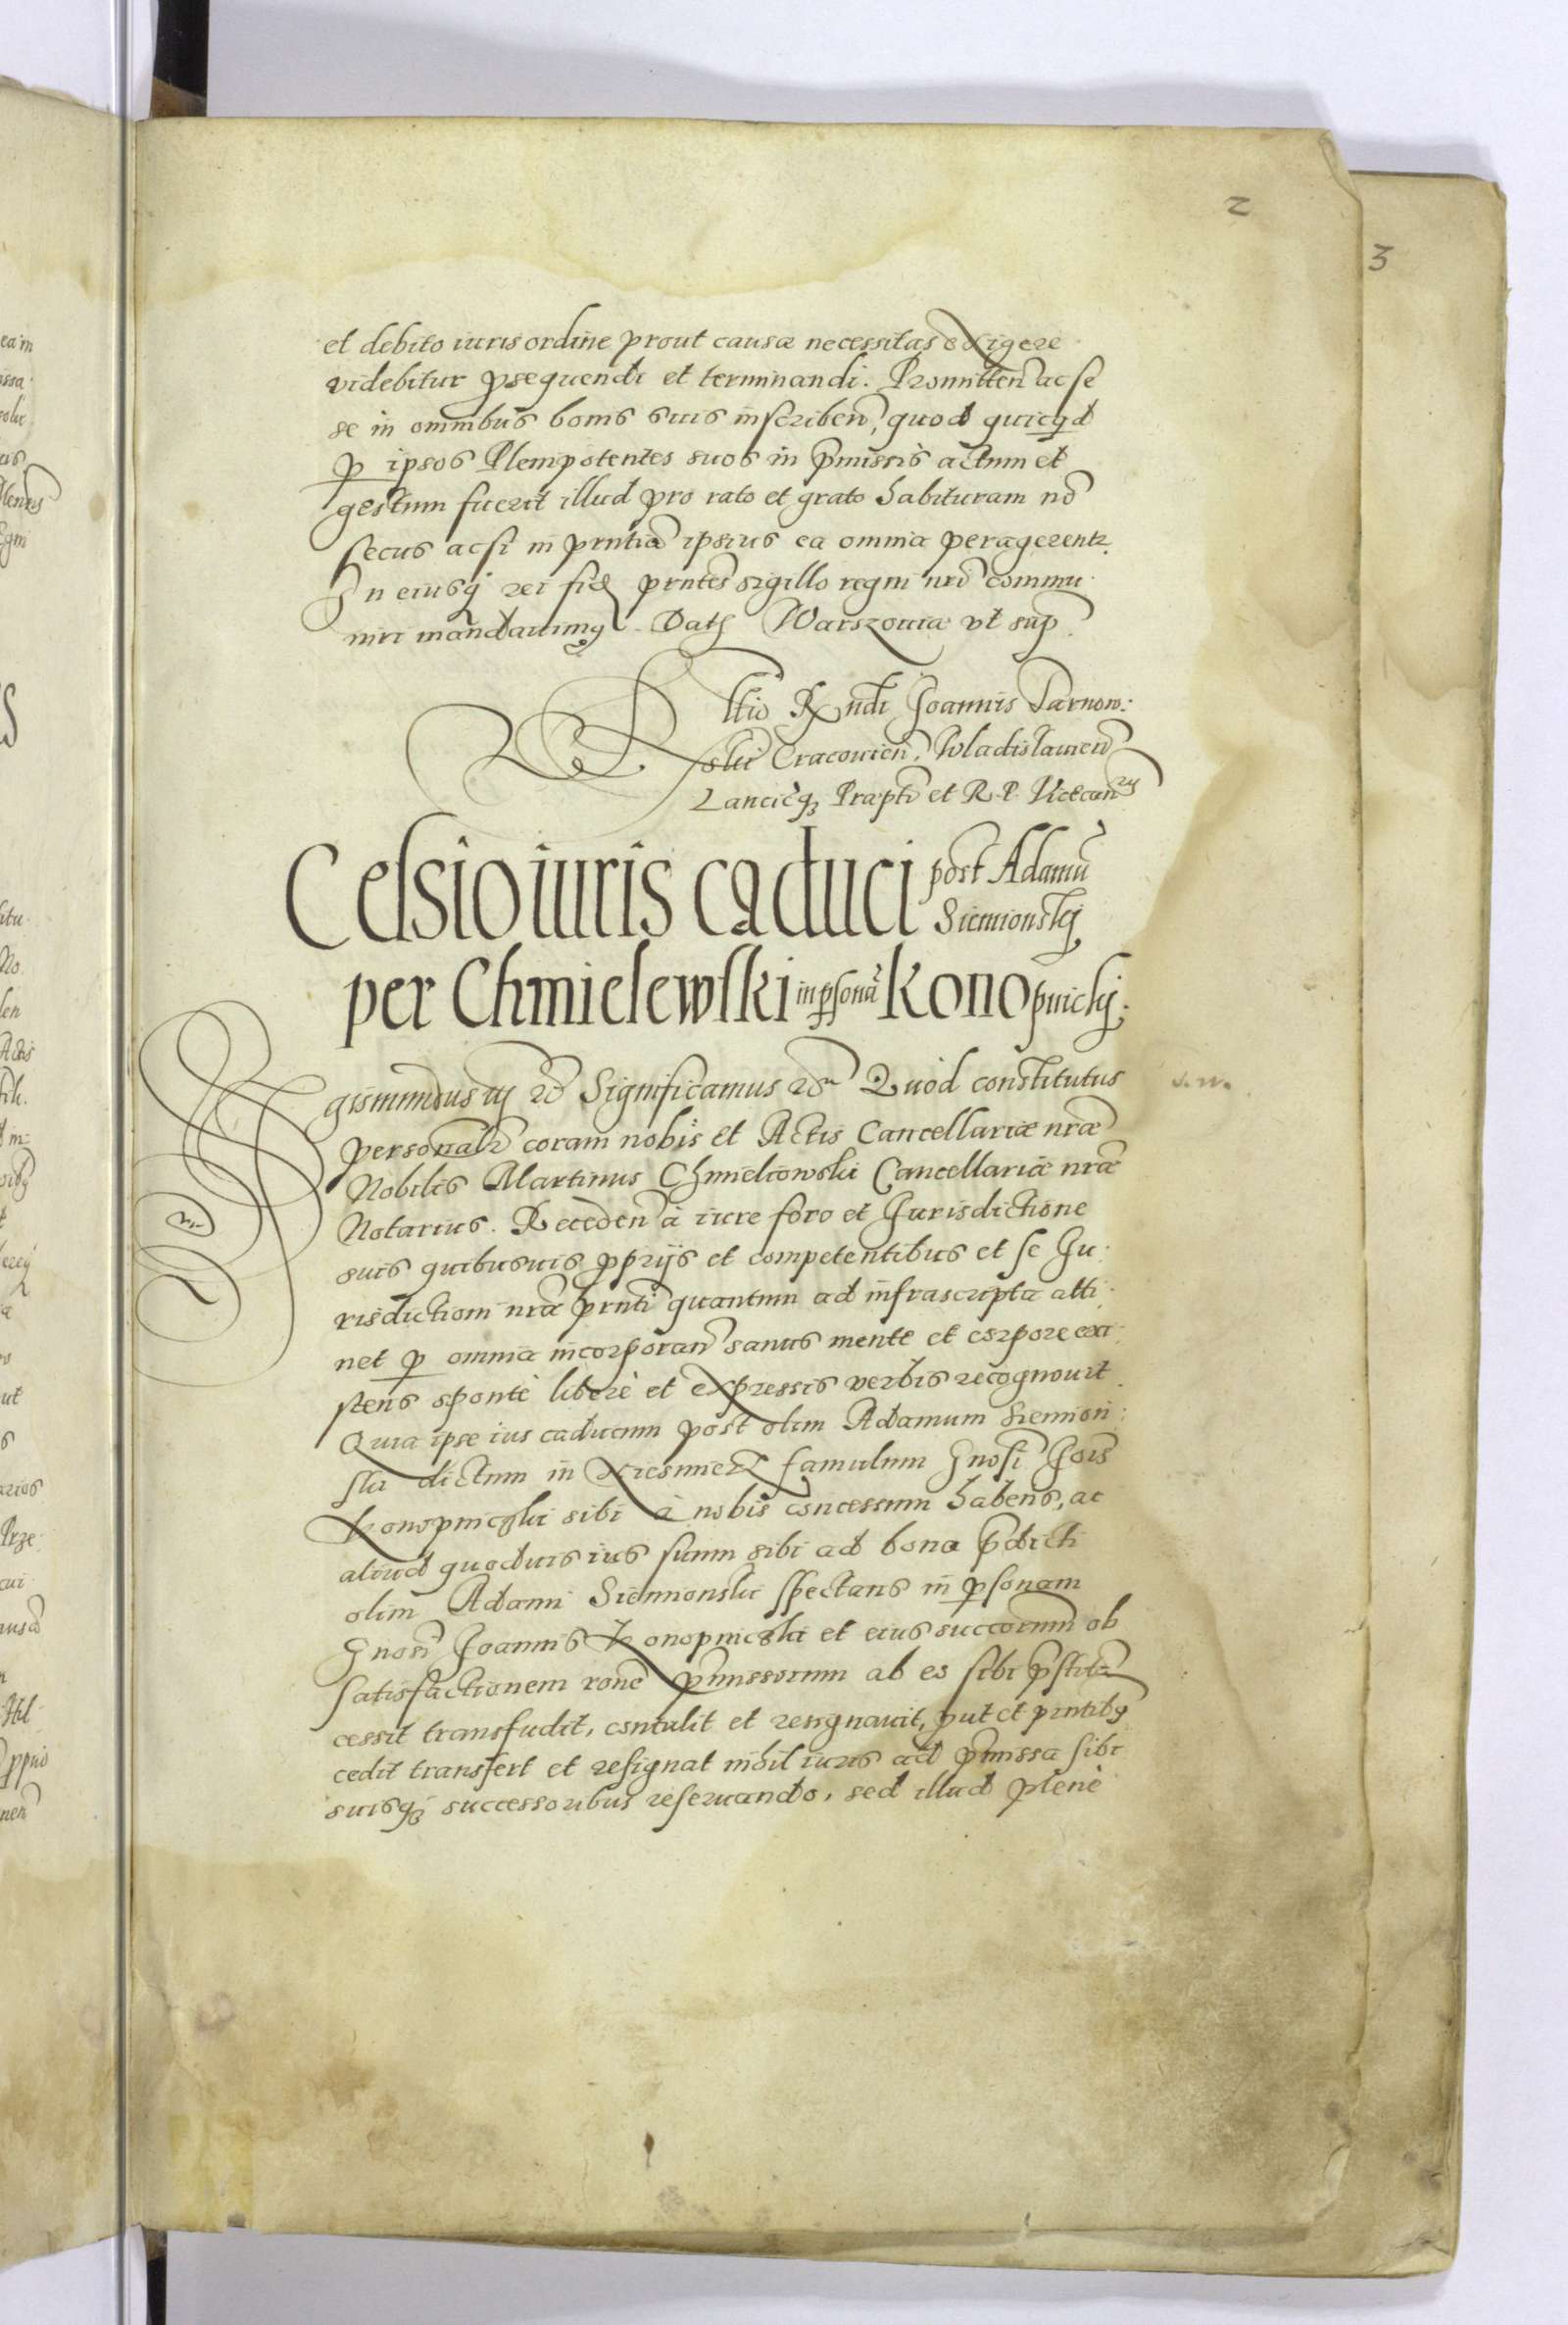 2
3
et debito iuris ordine prout causæ necessitas exigere
videbitur psequendi et terminandi. Promitten̄ ac se
se in omnibus bonis suis inscriben̄, quod quicqd
p ipsos Plenipotentes suos in pmissis actum et
gestum fuerit illud pro rato et grato habituram nō
secus acsi in pntia ipsius ea omnia peragerentr.
In eiusq rei fidē pntes sigillo regni nri commu
niri mandauimq. Dat Warszouiæ vt sup
Rltio Rndi Joannis Tarnow:
ski Cracouien̄, Wladislauien̄
Lanciēq Præpti et R. P. Vicecan̄rij
Cessio iuris caduci post Adamū
Siemionskij
per Chmielewski in psonā Konopnickij.
Sigismundus iij etc̄ Significamus etc̄ Quod constitutus
personalr coram nobis et Actis Cancellariæ nræ
Nobilis Martinus Chmieliowski Cancellariæ nræ
Notarius. Receden̄ à iure foro et Jurisdictione
suis quibusuis pprijs et competentibus et se Ju:
risdictioni nræ pnti quantum ad infrascripta atti:
net p omnia incorporan̄ sanus mente et corpore exi:
stens spontè liberè et expressis verbis recognouit.
Quia ipse ius caducum post olim Adamum Siemion:
ski dictum in famulum Gnosi Jois
Konopniczki sibi à nobis concessum habens, ac
aliud quoduis ius suum sibi ad bona pdicti
olim Adami Siemionski spectans in psonam
Gnosi Joannis Konopniczki et eius succorum ob
satisfactionem rone pmissorum ab eo sibi pstitam
cessit transfudit, contulit et resignauit, put et pntibq
cedit transfert et resignat nihil iuris ad pmissa sibi
suisq successoribus reseruando, sed illud plenè